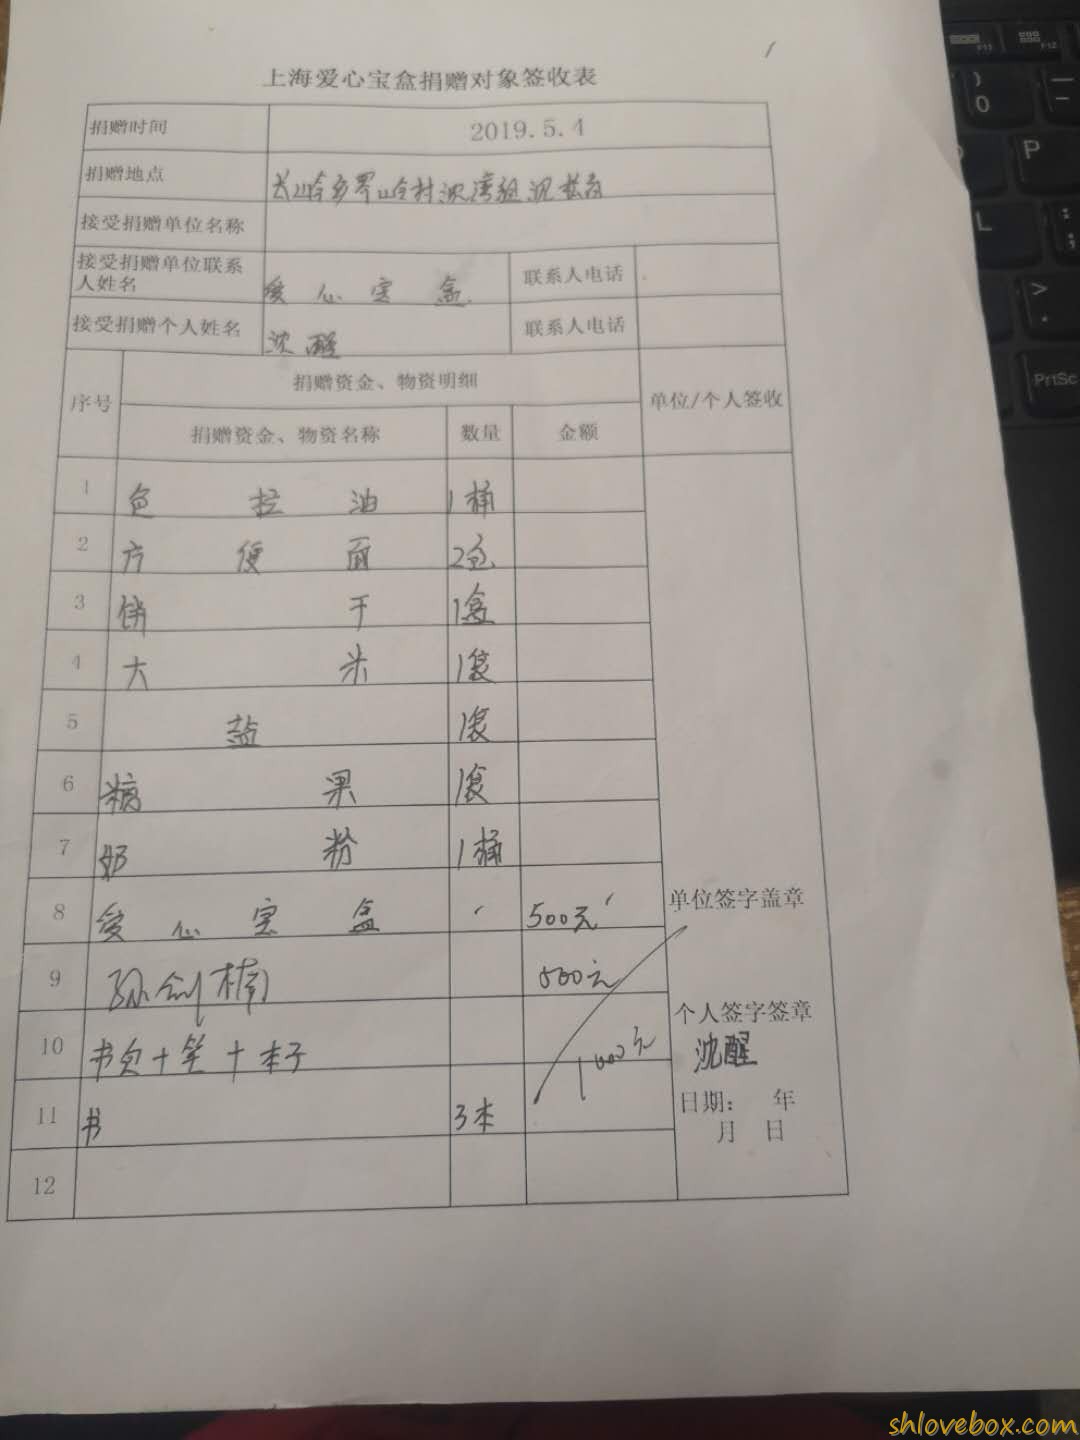 上海爱心宝盒捐赠对象签收表
捐赠时间 2019.5.4
捐赠地点 长岭乡界岭村沈湾组
接受捐赠单位名称
接受捐赠单位联系人姓名 爱心宝盒 联系人电话
接受捐赠个人姓名 沈醒 联系人电话
序号 捐赠资金、物资明细 单位/个人签收
捐赠资金、物资名称 数量 金额
1 色拉油 1桶
2 方便面 2包
3 饼干 1盒
4 大米 1袋
5 盐 1袋
6 糖果 1袋
7 奶粉 1桶
8 爱心宝盒 500元
单位签字盖章
9 孙剑楠 500元
个人签字签章
10 书包+笔+本子 1000元
沈醒
11 书 3本
日期： 年
月 日
12
F11
F12
)
0
P
L
:
;
>
.
PrtSc
shlovebox.com